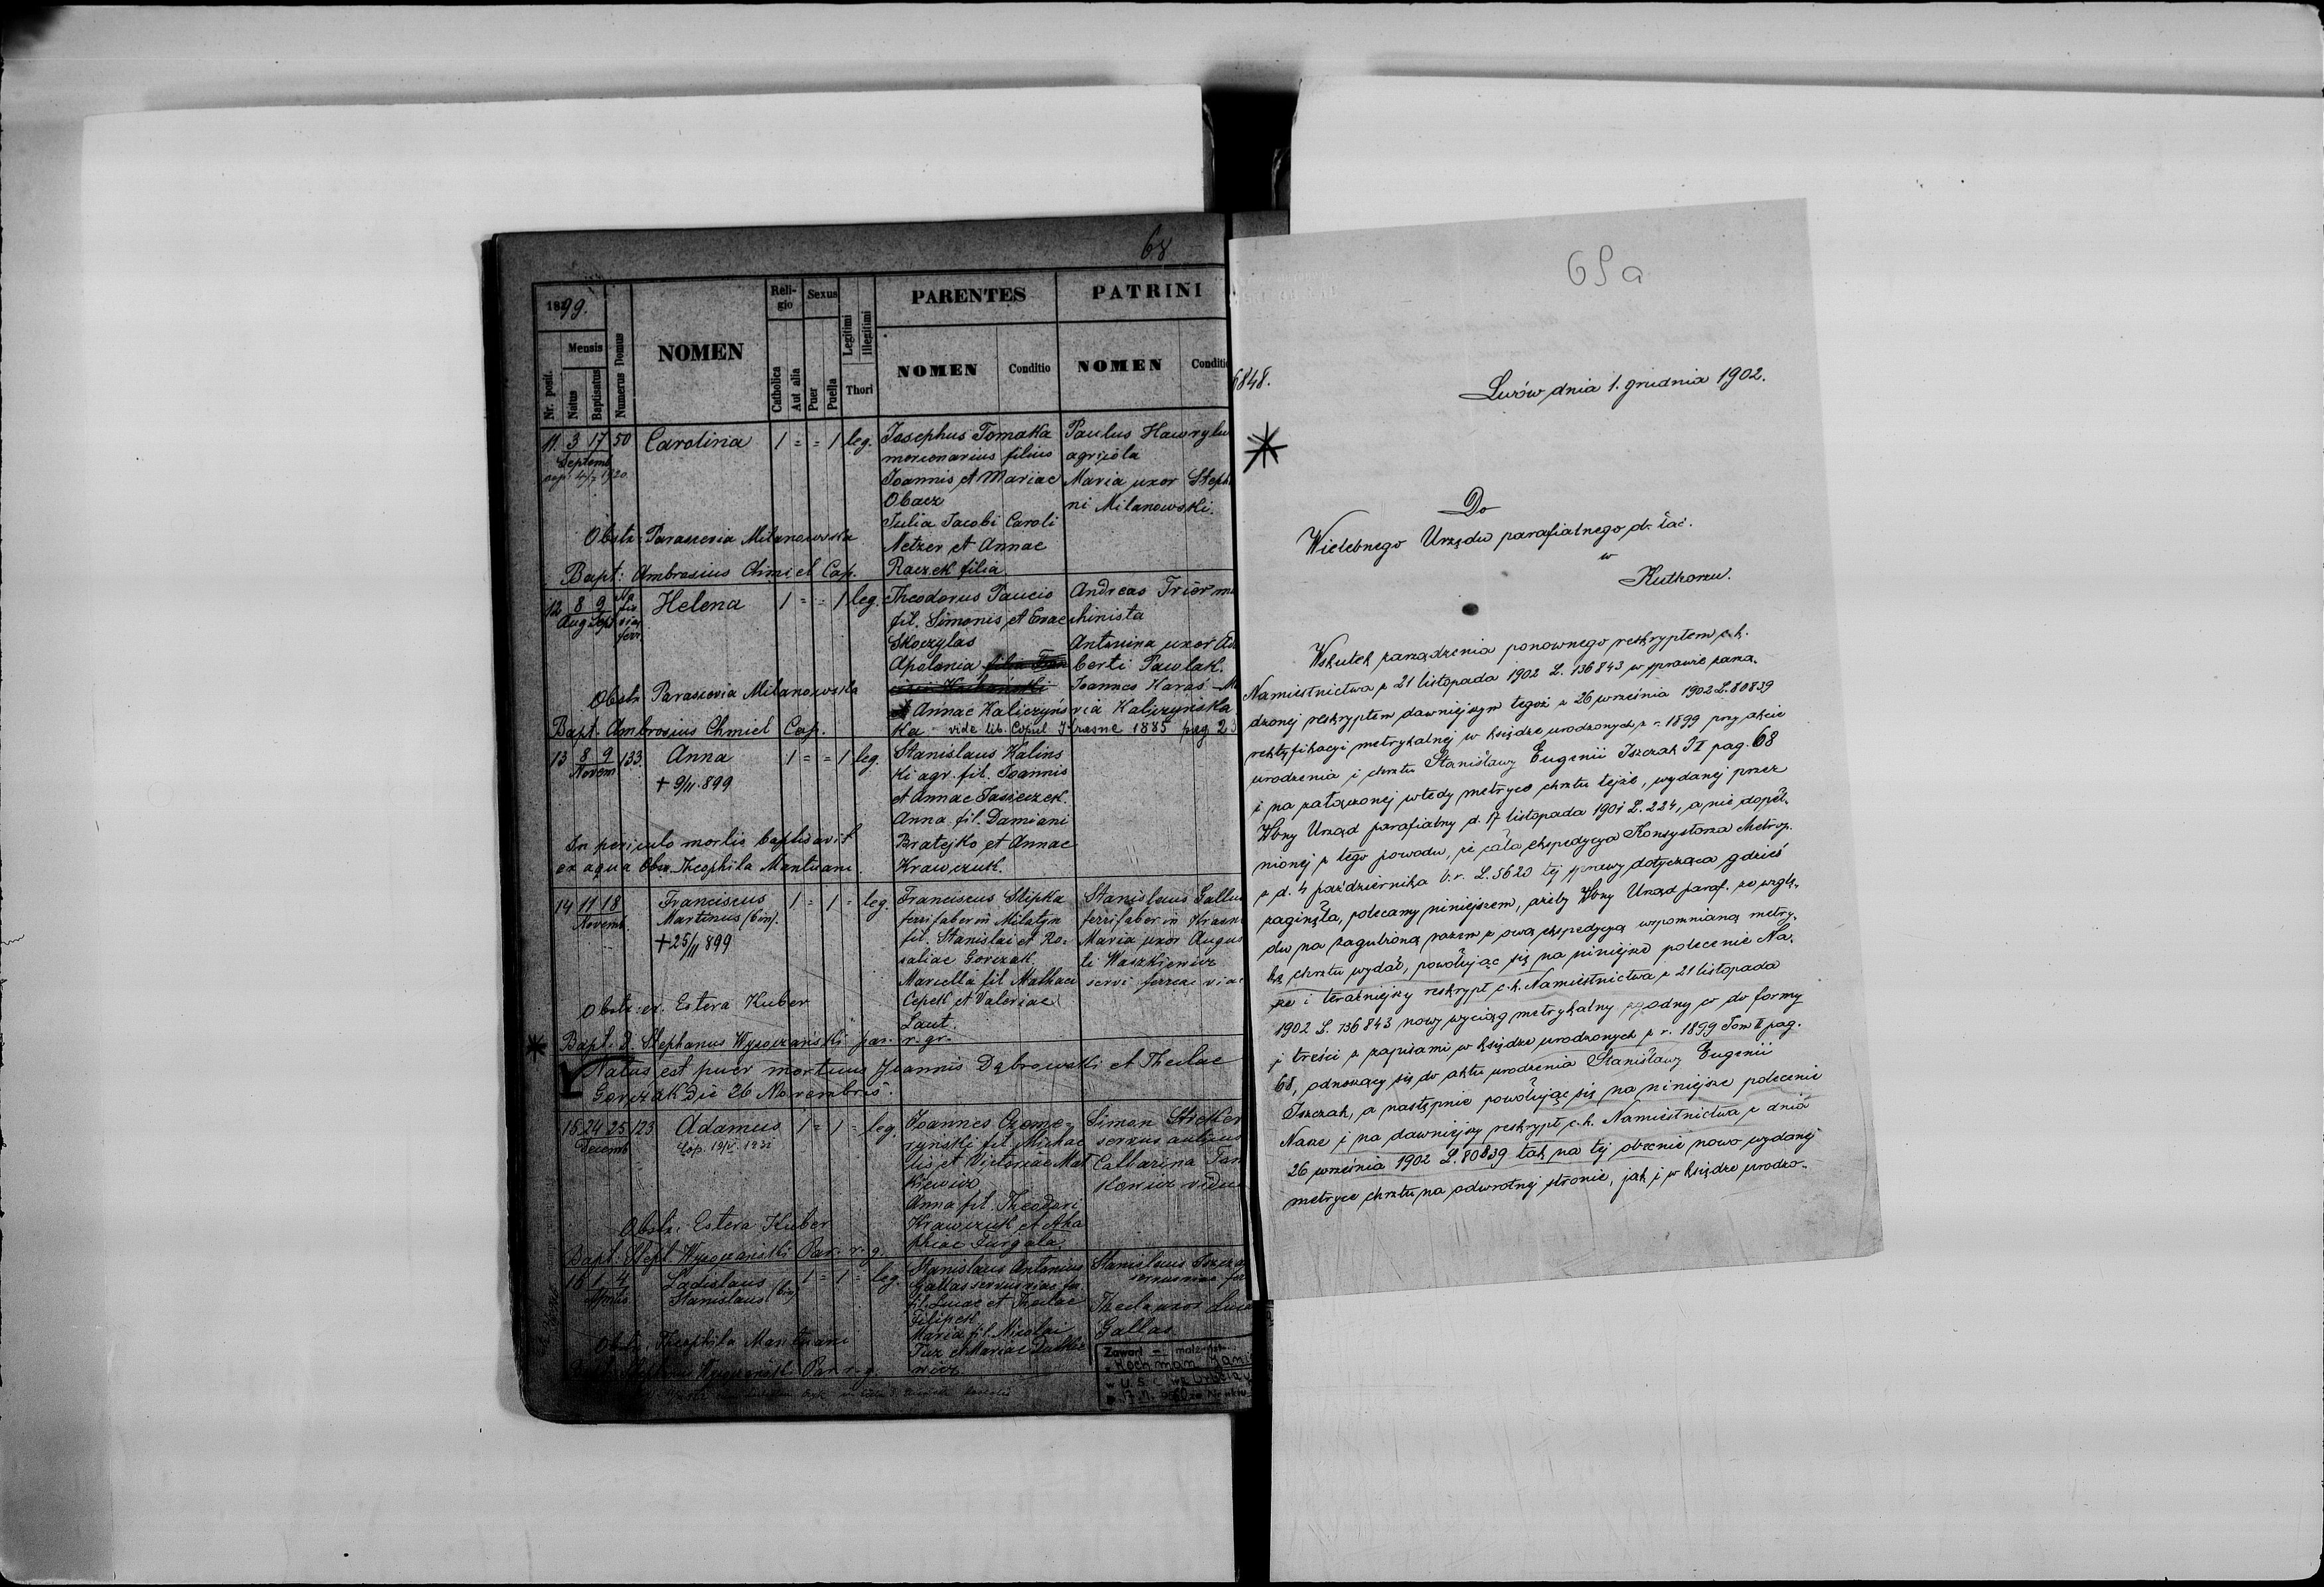 68
1899.
Nr. posit.
Mensis
Natus
Baptisatus
Numerus Domus
NOMEN
Religio
Catholica
Aut alia
Sexus
Puer
Puella
Legitimi
Illegitimi
Thori
PARENTES
NOMEN
Conditio
PATRINI
NOMEN
Conditio
11. 3 17 50 Carolina 1 = = 1 leg.
Septemb.
Josephus Tomaka
mercenarius filius
Joannis et Mariae
Obacz
Julia Jacobi Caroli
Netzer et Annae
Raczek filia
Paulus Hawrylu
agricola
Maria uxor Steph
ni Milanowski.
Obstr. Parascevia Milanowska
Bapt: Ambrosius Chmiel Cap.
12 8 9 Helena 1 = = 1 leg.
Aug Sept
Theodorus Paucio
fil. Simonis et Evae
Skoczylas
Apolonia
Annae Kaliczyńs
ka vide lib. Copul Krasne 1885 pag 23
Andreas Trior ma
chinista
Antonina uxor Ad
berti Pawlak.
Joannes Haraś Ma
ria Kaliczyńska
Obstr. Parascevia Milanowska
Bapt. Ambrosius Chmiel Cap.
13 8 9 133. Anna 1 = = 1 leg.
Novem
+ 9/11.899
Stanislaus Kalins
ki agr. fil. Joannis
et Annae Jasieczek.
Anna fil. Damiani
Bratejko et Annae
Krawczuk.
In periculo mortis baptisavit
ex aqua Obstr. Theophila Mantuani.
14 11 18 Franciscus 1 = 1 = leg.
Novemb. Martinus (bin).
+ 25/11 899
Franciscus Slipka
ferrifaber in Milatyn
fil. Stanislai et Ro-
saliae Gorczak.
Marcella fil Mathaei
Cepek et Valeriae
Laut.
Stanislaus Gallus
ferrifaber in Krasn
Maria uxor Augus
ti Waszkiewicz
servi ferreae viae
Obstr: ex. Estera Kuber
Bapt. D. Stephanus Wysoczański par. r. gr.
Natus est puer mortuus Joannis Dąbrowski et Theclae
Gorczak Die 26 Novembris.
15 24 25 123 Adamus 1 = 1 = leg.
Decemb
Joannes Czame-
ryński fil. Michae
lis et Victoriae Mat
kiewicz
Anna fil. Theodori
Krawczuk et Aha
phiae Furgala.
Simon Stecker
servus
Catharina Tan
kewicz vidu
Obstr: Estera Kuber
Bapt. Steph Wysoczański Par. r. g.
16 1 4 Ladislaus 1 = 1 = leg.
Aprilis Stanislaus (bin)
Stanislaus Antonius
Gallas servus viae fer.
fil. Lucae et Theclae
Filipek
Maria fil. Nicolai
Tuz et Mariae Dutkie
wicz
Stanislaus Iszcza
servus viae fer
Thecla uxor Luca
Gallas
Obstr. Theophila Mantuani
Stephanus Wysoczański Par. r. g.
Zawarł = małżeństwo
Kochman Jani
w U.S.C. we Wrocław
65a
6848.
Lwów dnia 1. grudnia 1902.
Do
Wielebnego Urzędu parafialnego obr. łać.
w
Kutkorzu.
Wskutek zarządzenia ponownego reskryptem c.k.
Namiestnictwa z 21 listopada 1902 L. 136843 w sprawie zarzą-
dzonej reskryptem dawniejszym tegoż z 26 września 1902 L. 80839
rektyfikacyi metrykalnej w księdze urodzonych z r. 1899 przy akcie
urodzenia i chrztu Stanisławy Eugenii Iszczak T II pag. 68
i na załączonej wtedy metryce chrztu tejże, wydanej przez
Wbny Urząd parafialny d. 17 listopada 1901 L. 224, a nie dopeł-
nionej z tego powodu, że cała ekspedycya Konsystorza Metrop.
z d. 4 października b.r. L. 5620 tej sprawy dotycząca gdzieś
zaginęła, polecamy niniejszem, ażeby Wbny Urząd paraf. ze wzglę-
du na zagubioną razem z ową ekspedycyą wspomnianą metry-
kę chrztu wydał, powołując się na niniejsze polecenie Na-
sze i teraźniejszy reskrypt c.k. Namiestnictwa z 21 listopada
1902 L. 136843 nowy wyciąg metrykalny zgodny co do formy
i treści z zapisami w księdze urodzonych z r. 1899 Tom II pag.
68, odnoszący się do aktu urodzenia Stanisławy Eugenii
Iszczak, a następnie powołując się na niniejsze polecenie
Nasze i na dawniejszy reskrypt c.k. Namiestnictwa z dnia
26 września 1902 L. 80839 tak na tej obecnie nowo wydanej
metryce chrztu na odwrotnej stronie, jak i w księdze urodzo-